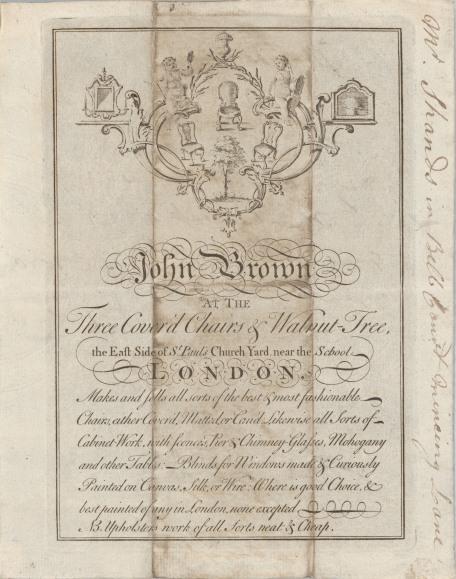 John Brown
AT THE
Three Cover'd Chairs & Walnut-Tree,
the East Side of St. Pauls Church Yard, near the School
LONDON.
Makes and sells all sorts of the best & most fashionable
Chairs, either Cover'd, Matted, or Caned. Likewise all Sorts of
Cabinet Work, with Sconces, Pier & Chimney-Glasses, Mahogany
and other Tables: Blinds for Windows made & Curiously
Painted on Canvas, Silk, or Wire: Where is good Choice, &
best painted of any in London, none excepted
NB. Upholsters work of all Sorts neat & Cheap.
Mr. Shands in Bell Court Mincing Lane